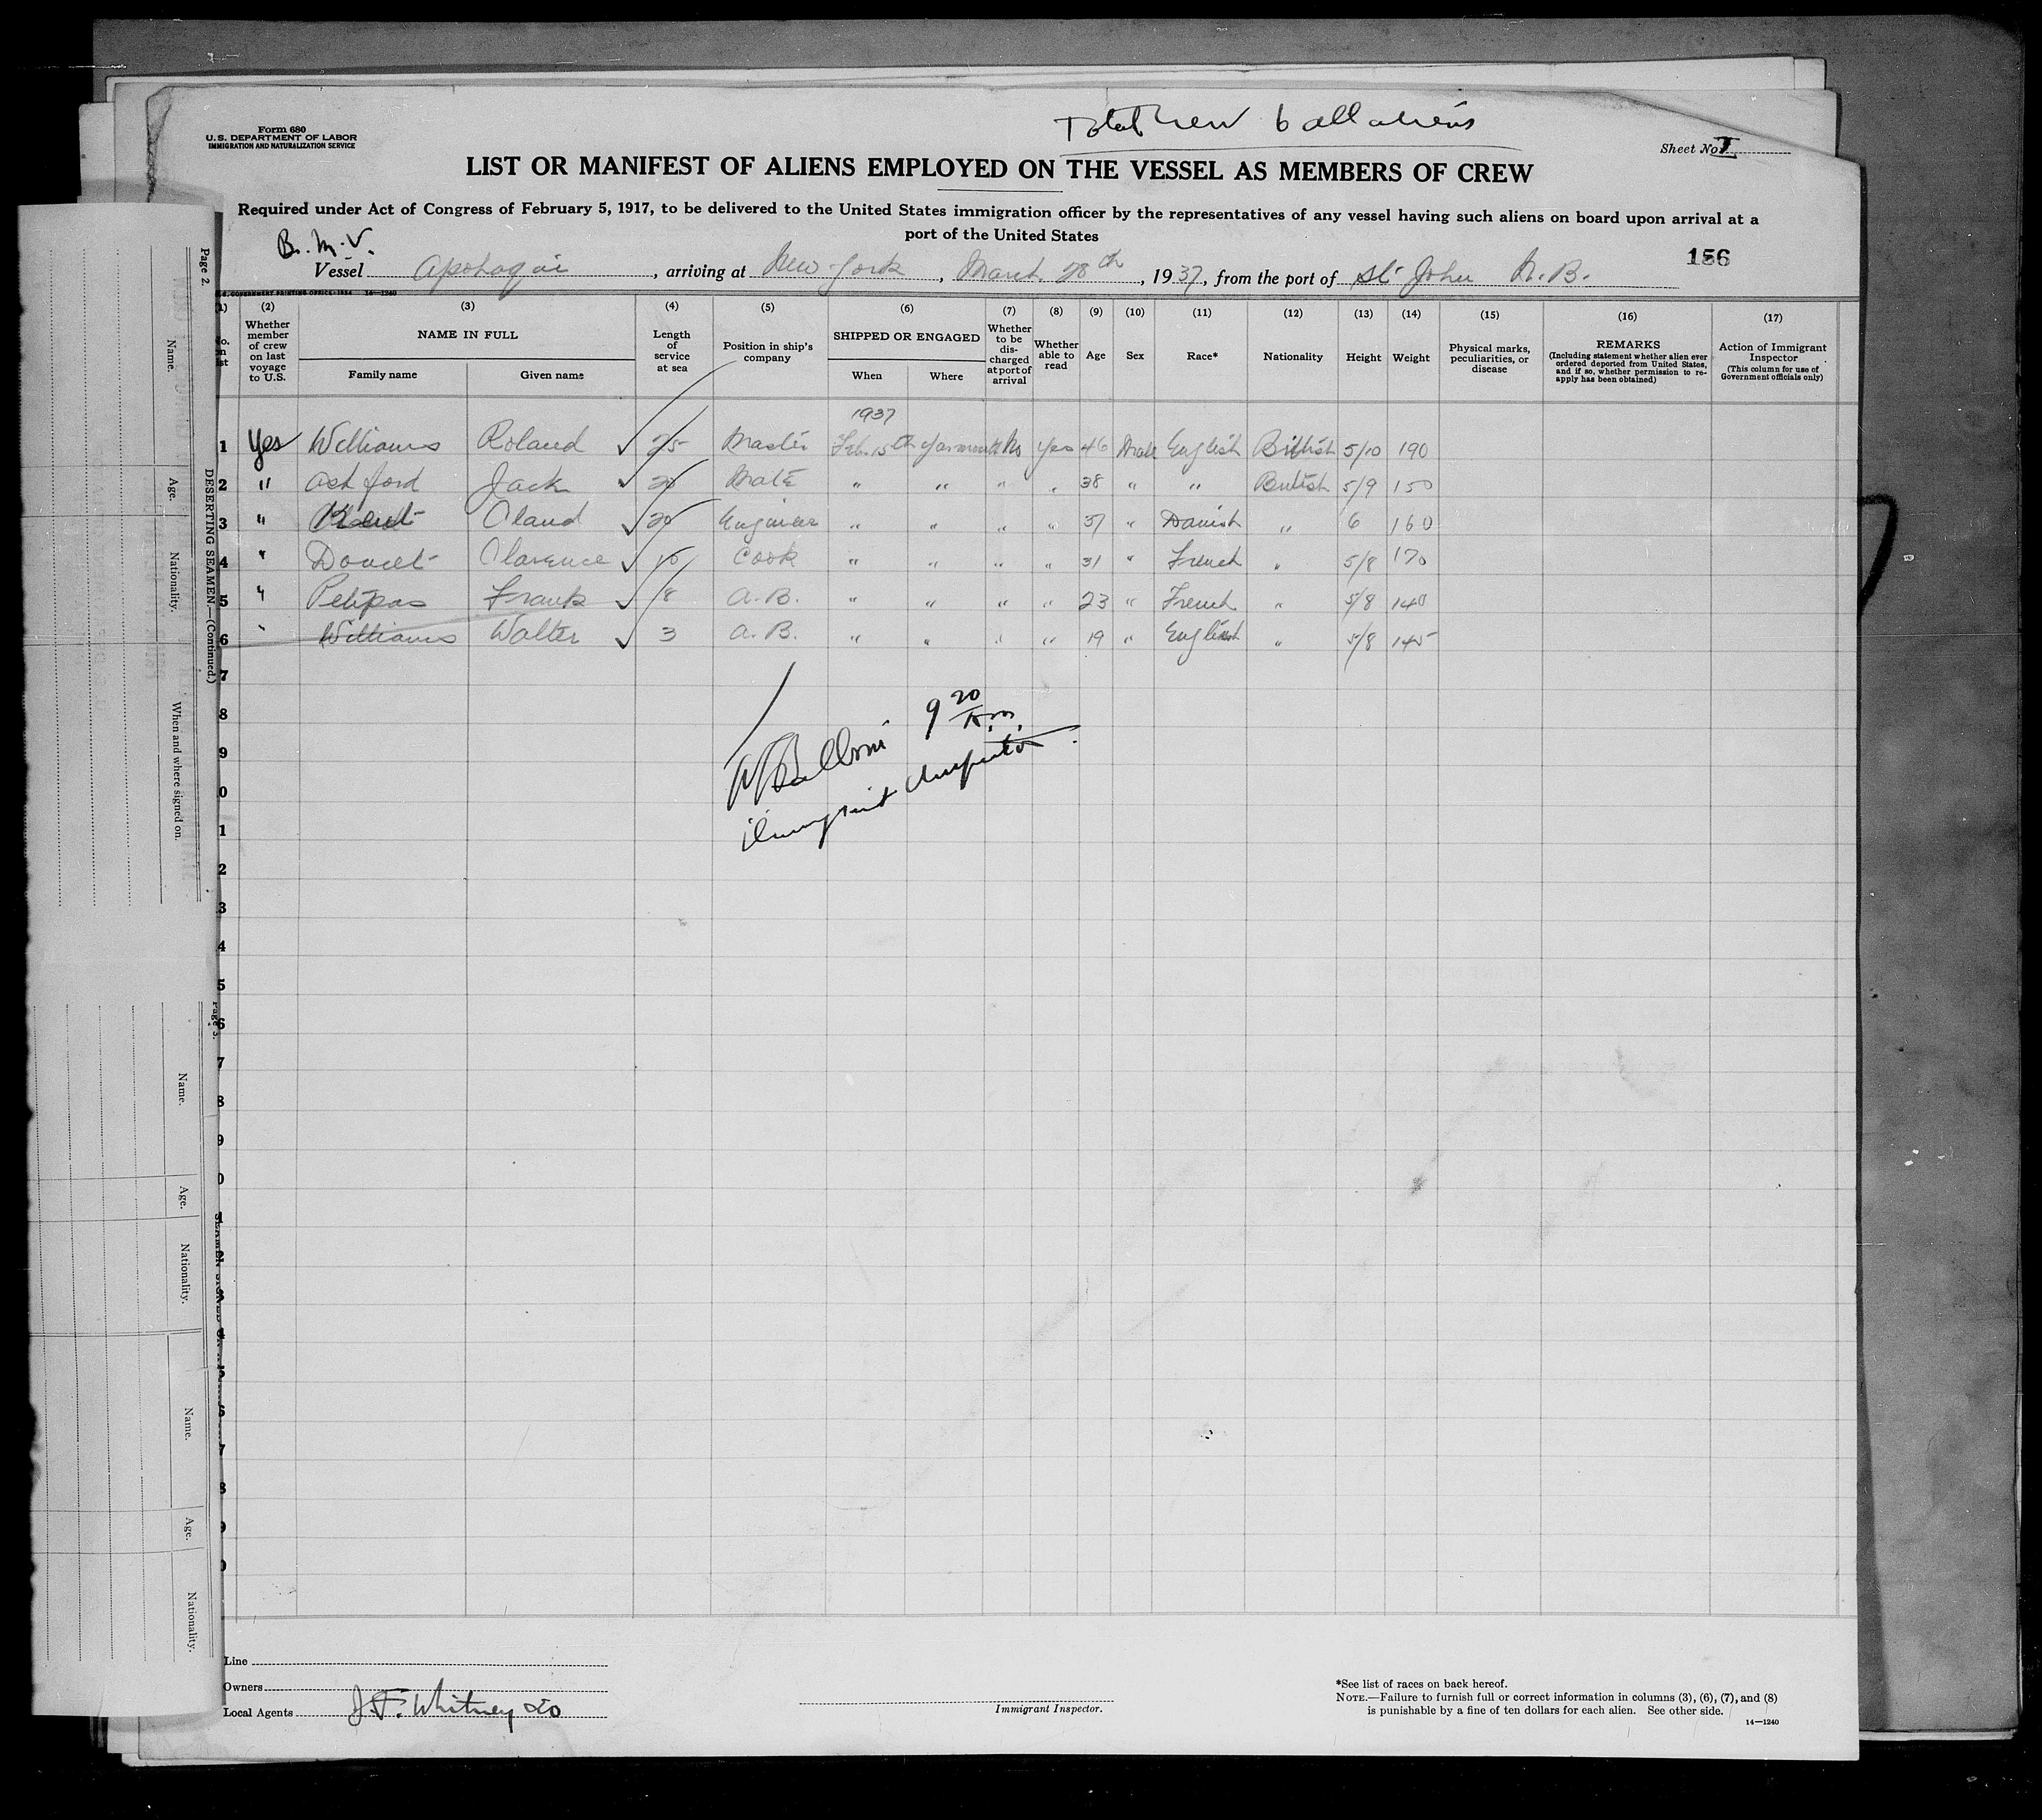 Total Crew 6 all aliens
Form 680
U.S. DEPARTMENT OF LABOR
IMMIGRATION AND NATURALIZATION SERVICE
Sheet No. I
LIST OR MANIFEST OF ALIENS EMPLOYED ON THE VESSEL AS MEMBERS OF CREW
Required under Act of Congress of February 5, 1917, to be delivered to the United States immigration officer by the representatives of any vessel having such aliens on board upon arrival at a
port of the United States
156
Br. M. V.
Vessel Apohaqui, arriving at New York, March 28th, 1937, from the port of St John N.B.
U.S. GOVERNMENT PRINTING OFFICE: 1934 14—1240
(1) (2) (3) (4) (5) (6) (7) (8) (9) (10) (11) (12) (13) (14) (15) (16) (17)
No. on list
Whether member of crew on last voyage to U.S.
NAME IN FULL
Family name Given name
Length of service at sea
Position in ship's company
SHIPPED OR ENGAGED
When Where
Whether to be discharged at port of arrival
Whether able to read
Age
Sex
Race*
Nationality
Height
Weight
Physical marks, peculiarities, or disease
REMARKS
(Including statement whether alien ever ordered deported from United States, and if so, whether permission to reapply has been obtained)
Action of Immigrant Inspector
(This column for use of Government officials only)
1937
1 Yes Williams Roland ✓ 25 Master Feb. 15th Yarmouth No Yes 46 Male English British 5/10 190
2 " Ashford Jack ✓ 20 Mate " " " " 38 " " British 5/9 150
3 " Claud ✓ 20 Engineer " " " " 37 " Danish " 6 160
4 " Doucet Clarence ✓ 10 Cook " " " " 31 " French " 5/8 170
5 " Petipas Frank ✓ 8 A.B. " " " " 23 " French " 5/8 140
6 " Williams Walter ✓ 3 A.B. " " " " 19 " English " 5/8 145
7
8
9
0
1
2
3
4
5
6
7
8
9
0
9 20 A.m.
Immigrant Inspector
Line
Owners
Local Agents J.F. Whitney & Co
Immigrant Inspector.
*See list of races on back hereof.
NOTE.—Failure to furnish full or correct information in columns (3), (6), (7), and (8)
is punishable by a fine of ten dollars for each alien. See other side.
14—1240
Page 2.
DESERTING SEAMEN.—(Continued.)
Name.
Age.
Nationality.
When and where signed on.
Page 3.
Name.
Age.
Nationality.
Name.
Age.
Nationality.